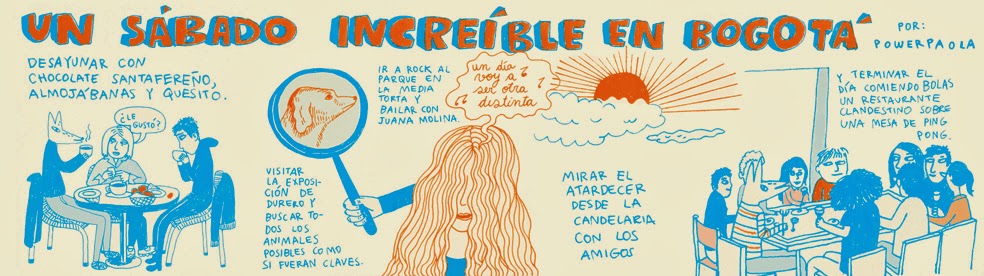 UN SÁBADO INCREÍBLE EN BOGOTÁ
POR:
POWERPAOLA
DESAYUNAR CON
CHOCOLATE SANTAFEREÑO,
ALMOJÁBANAS Y QUESITO.
¿LE
GUSTÓ?
VISITAR
LA EXPOSI-
CIÓN DE
DURERO Y
BUSCAR TO-
DOS LOS
ANIMALES
POSIBLES COMO
SI FUERAN CLAVES.
IR A ROCK AL
PARQUE EN
LA MEDIA
TORTA Y
BAILAR CON
JUANA MOLINA.
un día
voy a
ser otra
distinta
MIRAR EL
ATARDECER
DESDE LA
CANDELARIA
CON LOS
AMIGOS
Y TERMINAR EL
DÍA COMIENDO BOLAS
UN RESTAURANTE
CLANDESTINO SOBRE
UNA MESA DE PING
PONG.